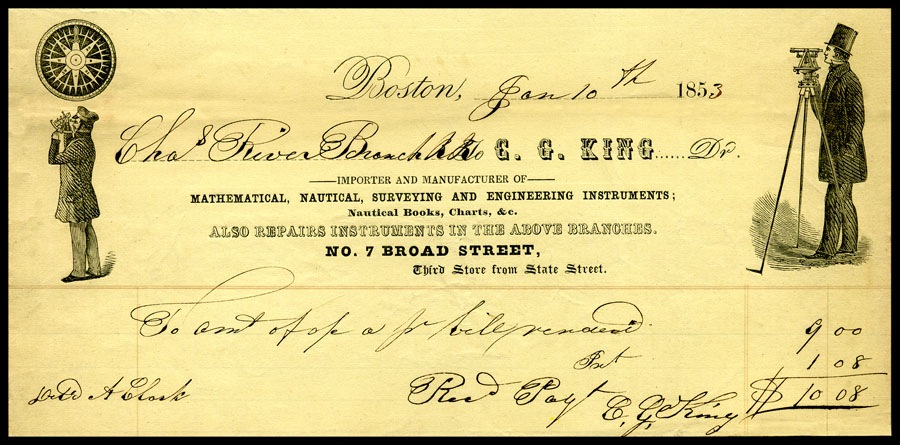 Boston, Jan 10th 1853
Chas River Branch R R To C. G. KING ...... Dr.
IMPORTER AND MANUFACTURER OF
MATHEMATICAL, NAUTICAL, SURVEYING AND ENGINEERING INSTRUMENTS;
Nautical Books, Charts, &c.
ALSO REPAIRS INSTRUMENTS IN THE ABOVE BRANCHES.
NO. 7 BROAD STREET,
Third Store from State Street.
To amt of a pr bill rendered 9 00
1 08
Recd Payt C. G. King $ 10 08
A Clark